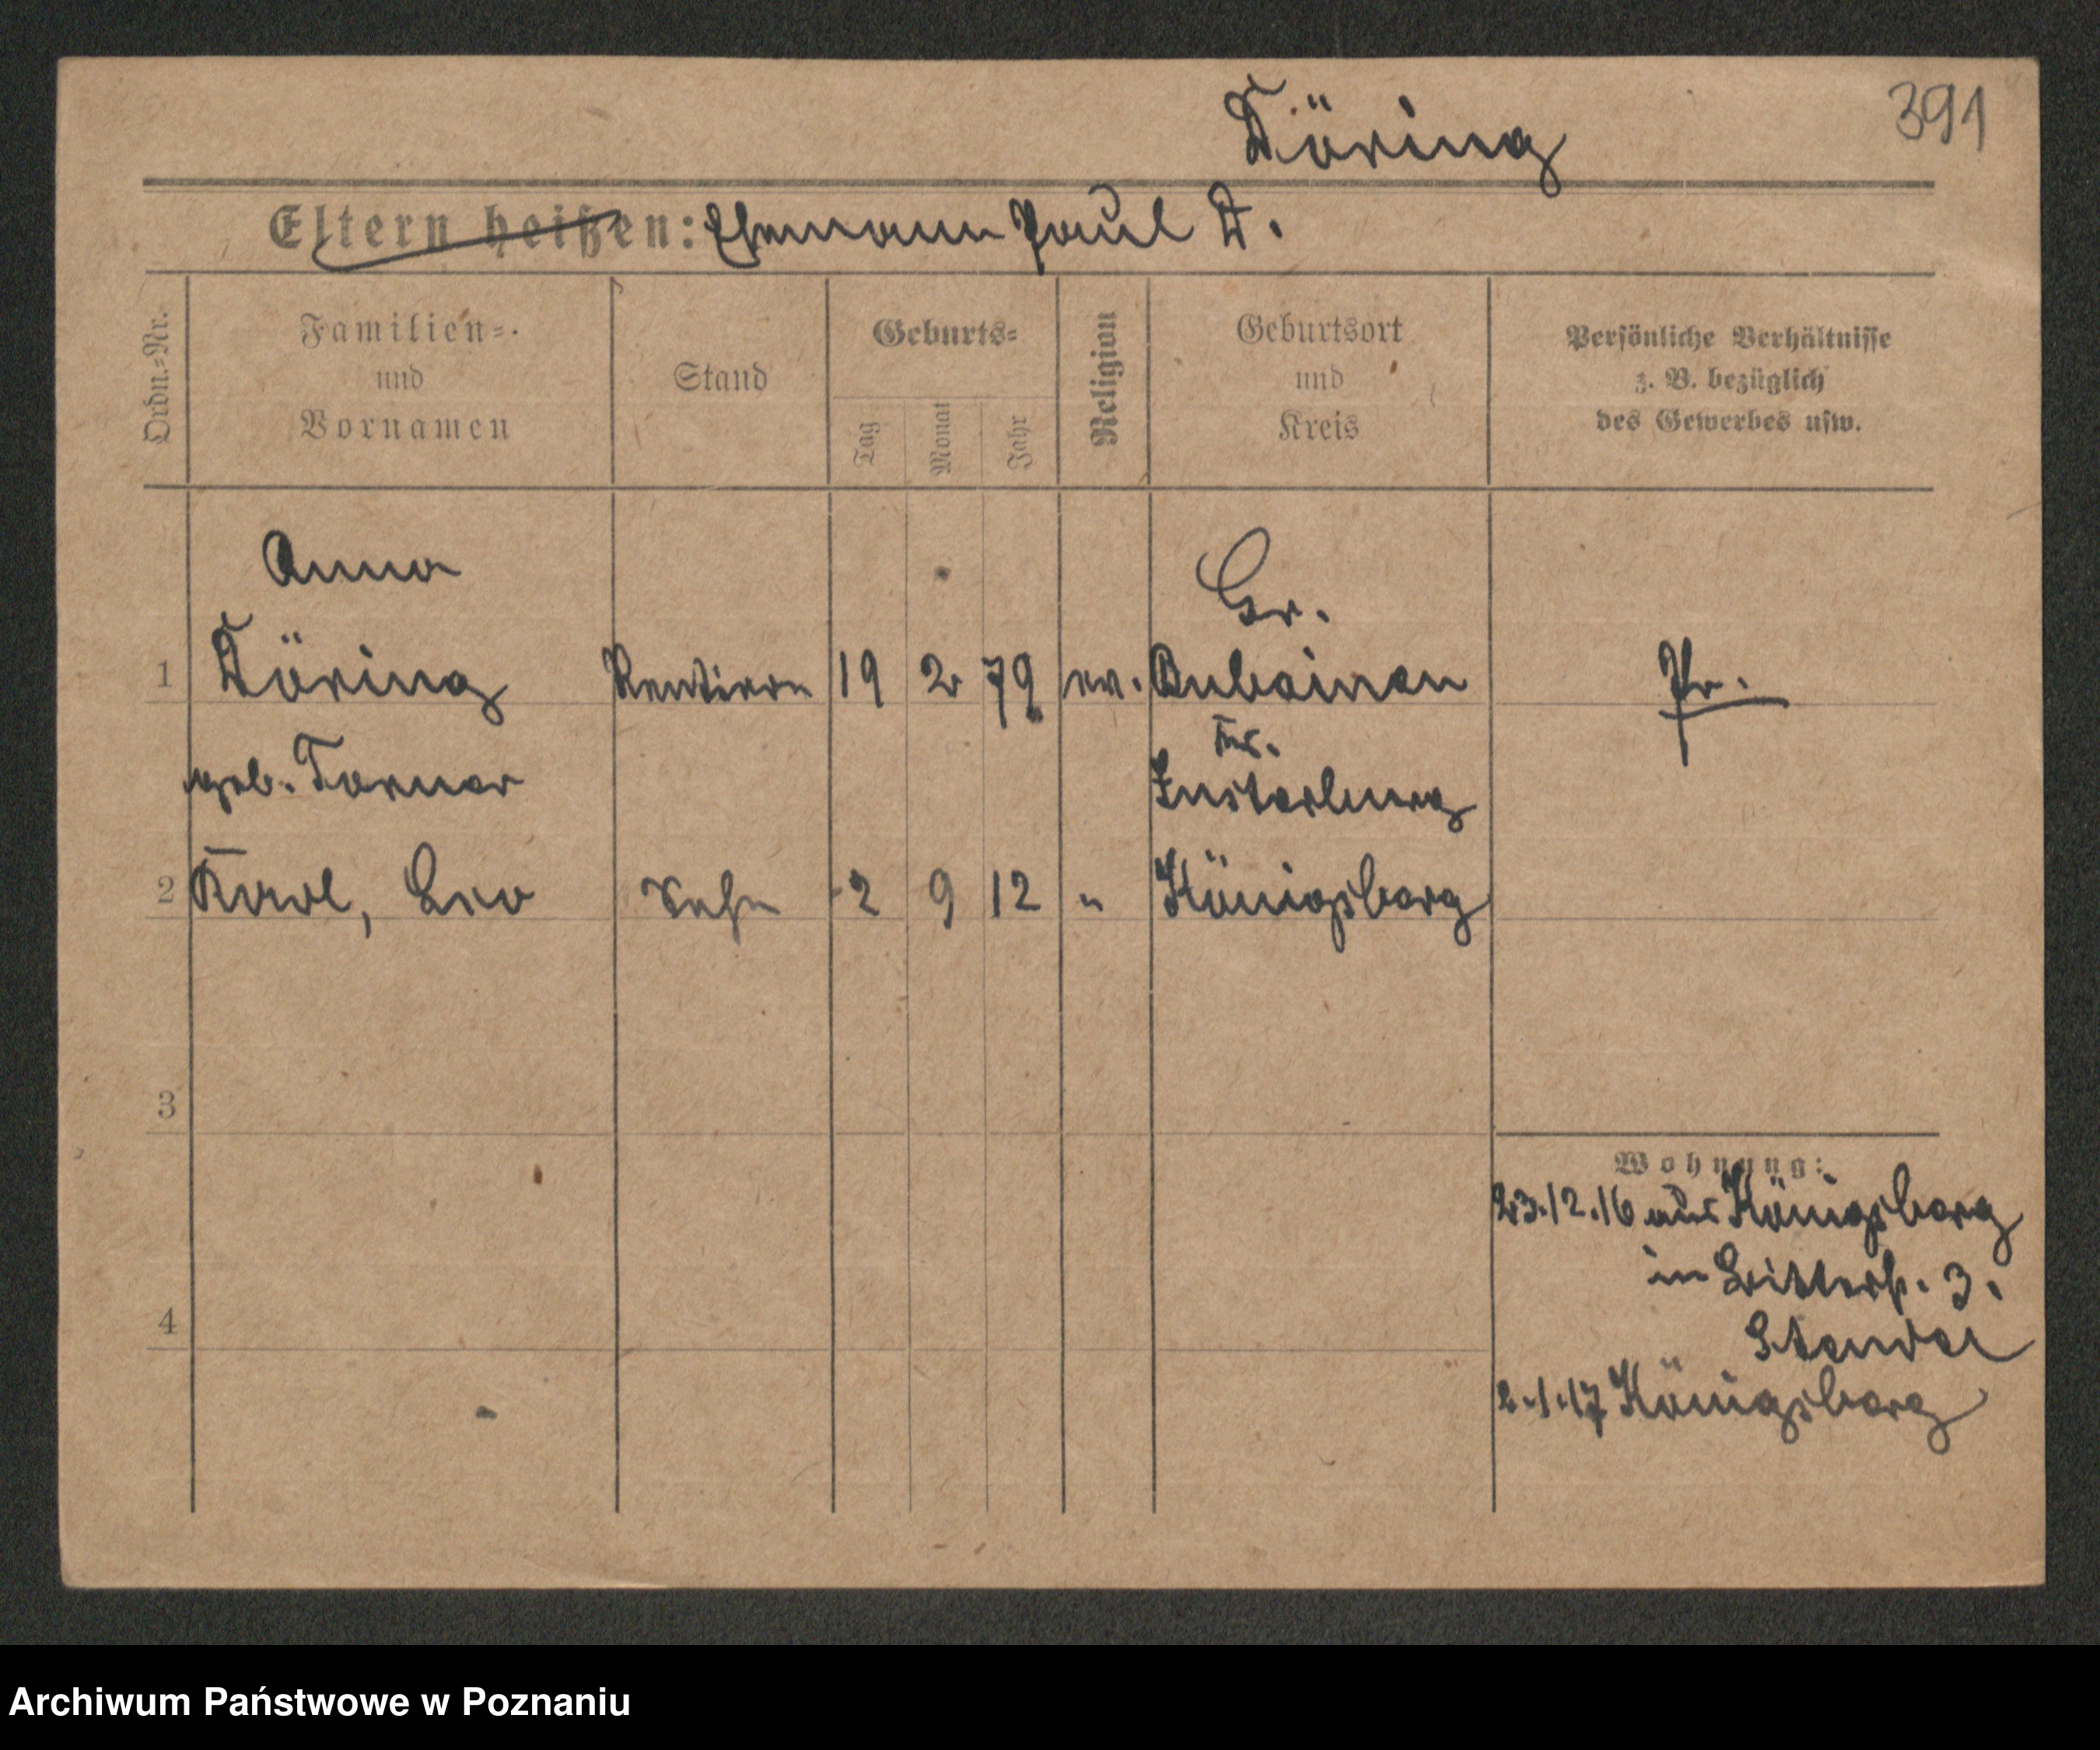 391
Döring
Eltern heißen: Ehemann Paul D.
Ordn.=Nr.
Familien=
und
Vornamen
Stand
Geburts=
Tag
Monat
Jahr
Religion
Geburtsort
und
Kreis
Persönliche Verhältnisse
z. B. bezüglich
des Gewerbes usw.
Anna
Gr.
1 Döring 19 2 79 ev. Bubainen Pr.
Kr.
geb. Torner Insterburg
2 Karl, Leo Sohn 2 9 12 " Königsberg
3
Wohnung:
23.12.16 aus Königsberg
in 3.
4
2.1.17 Königsberg
Archiwum Państwowe w Poznaniu